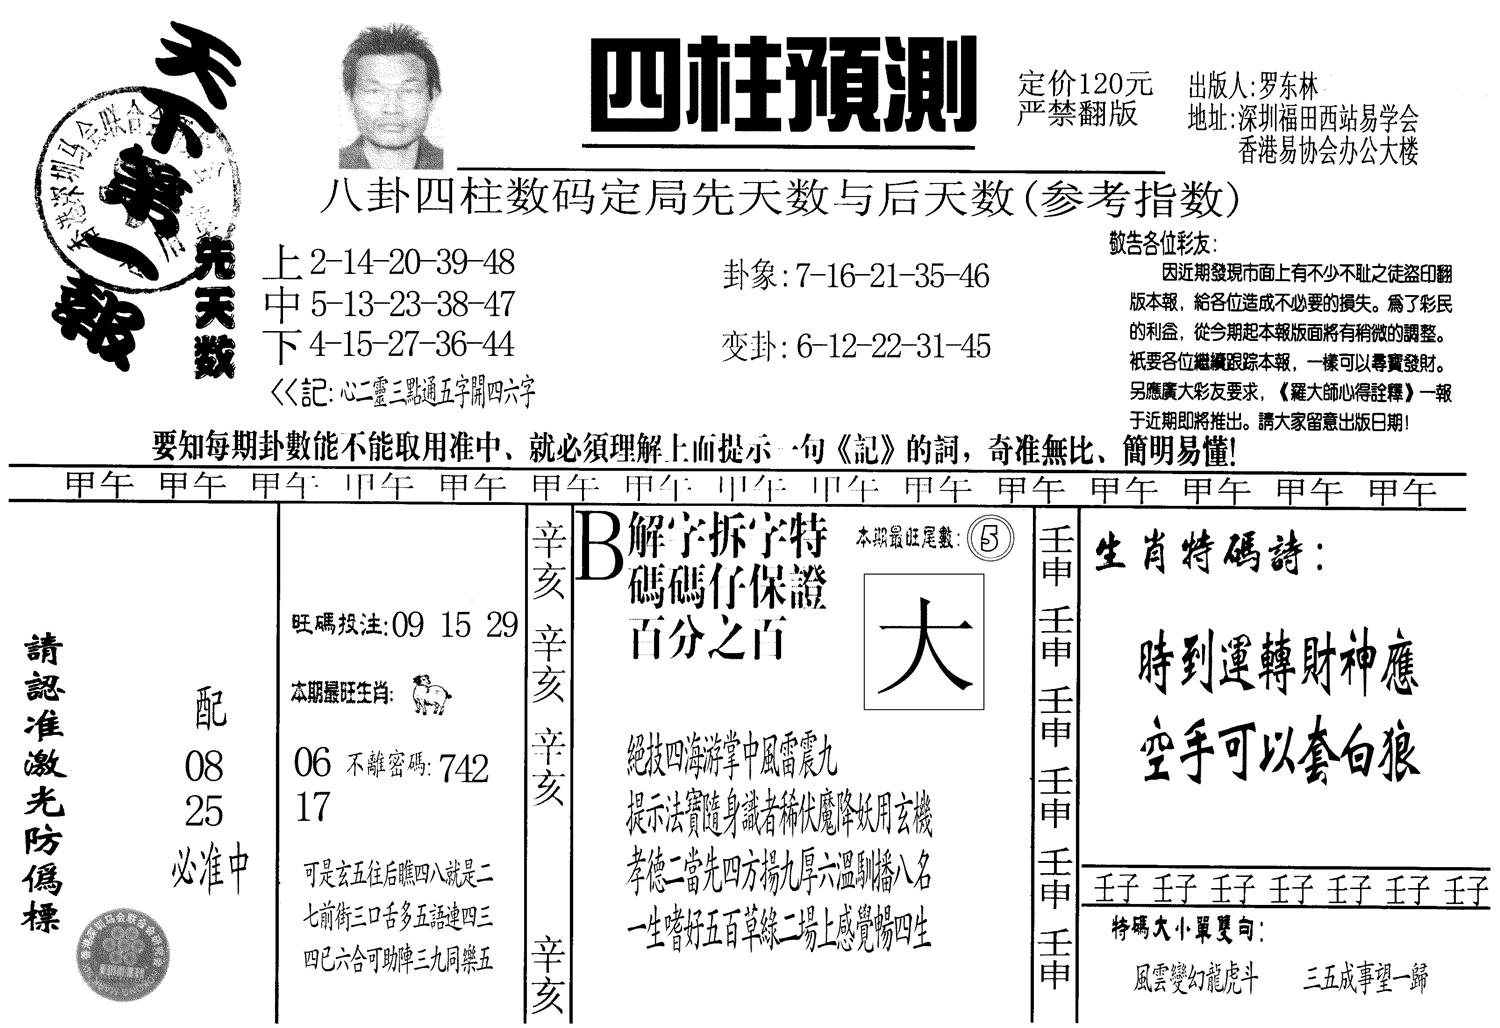 天下第一報
四柱預測
定价120元
严禁翻版
出版人:罗东林
地址:深圳福田西站易学会
香港易协会办公大楼
八卦四柱数码定局先天数与后天数(参考指数)
先天数
上 2-14-20-39-48
中 5-13-23-38-47
下 4-15-27-36-44
<<記: 心二靈三點通五字開四六字
卦象: 7-16-21-35-46
变卦: 6-12-22-31-45
敬告各位彩友:
因近期發現市面上有不少不恥之徒盜印翻
版本報，給各位造成不必要的損失。爲了彩民
的利益，從今期起本報版面將有稍微的調整。
衹要各位繼續跟踪本報，一樣可以尋寶發財。
另應廣大彩友要求，《羅大師心得詮釋》一報
于近期即將推出。請大家留意出版日期!
要知每期卦數能不能取用准中、就必須理解上面提示一句《記》的詞，奇准無比、簡明易懂!
甲午 甲午 甲午 甲午 甲午 甲午 甲午 甲午 甲午 甲午 甲午 甲午 甲午 甲午 甲午
請認准激光防僞標
配
08
25
必准中
旺碼投注:09 15 29
本期最旺生肖:
06 不離密碼: 742
17
可是玄五往后瞧四八就是二
七前街三口舌多五語連四三
四已六合可助陣三九同樂五
辛亥
辛亥
辛亥
辛亥
B
解字拆字特
碼碼仔保證
百分之百
本期最旺尾數: 5
大
絕技四海游掌中風雷震九
提示法寶隨身識者稀伏魔降妖用玄機
孝德二當先四方揚九厚六溫馴播八名
一生嗜好五百草綠二場上感覺暢四生
壬申
壬申
壬申
壬申
壬申
壬申
生肖特碼詩:
時到運轉財神應
空手可以套白狼
壬子 壬子 壬子 壬子 壬子 壬子 壬子
特碼大小單雙句:
風雲變幻龍虎斗 三五成事望一歸